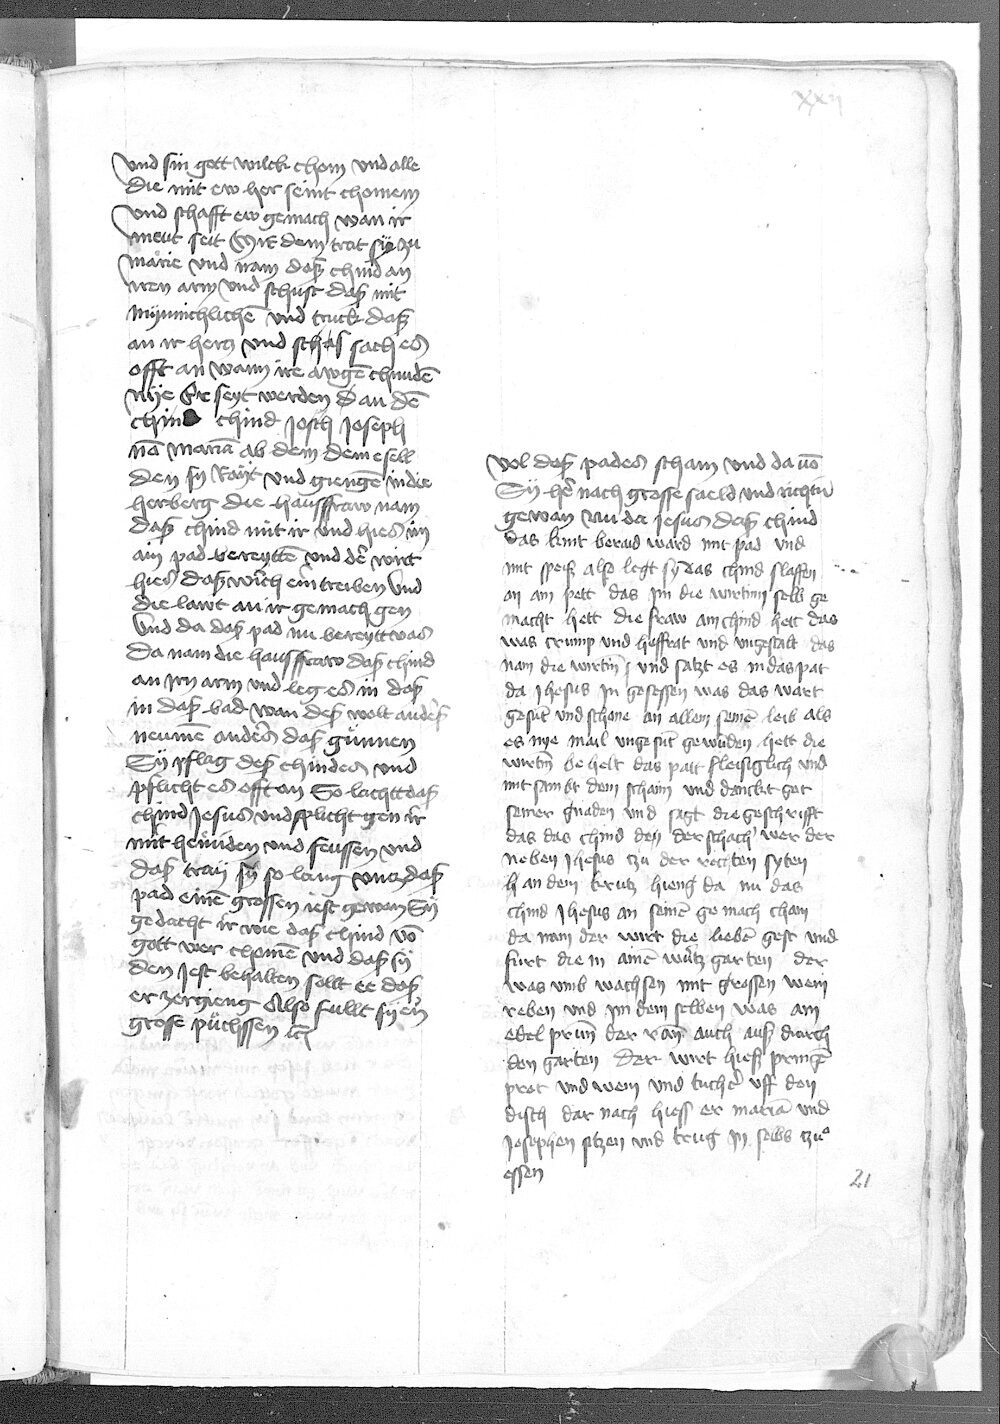 xxij
Vnd sin gott wilck chom vnd alle
die mit ew her seint chomem
vnd schafft ew gemach wan ir
meut seit Mit dem trat sÿ zu
marie vnd nam daß chind an
iren arm vnd daß mit
mÿnnichlichē vnd truck daß
an ir hercz vnd sach es
offt an wann ire awgē chundē
nÿe werden dan dē
chind Joseph
nā Mariā ab dem dem esell
den sÿ Rait vnd giengē in die
herberg die haussfraw nam
daß chind mit ir vnd hies im
ain pad bereyttē vnd der wirt
hies daß vich ein treiben vnd
die lawt an ir gemach gen
Vnd da daß pad nu bereytt was
Da nam die haussfraw daß chind
an irn arm vnd leg es in daß
in daß bad wan deß wolt
neumē anders daß günnen
Sÿ pflag deß chindes vnd
pflicht es offt on So lachtt daß
chind Jesus vnd splicht gen ir
mit hennden vnd feussen vnd
daß traij sÿ so lang vncz daß
pad einē grossen jest gewan Sÿ
gedacht ir wie daß chind vō
gott wer chomē vnd daß sÿ
den Jest behalten sollt ee daß
er zergieng Also fullt sÿ ein
grose püchssen
vol deß pades scham vnd da vō
Sÿ her nach grosse saeld vnd richtū
gewan Nu da Jesus daß chind
Das kint beraid ward mit pad vnd
mit speiß also legt sÿ das chind slaffen
an am pett das jm die wirtinn selb ge
macht hett die fraw am chind hett das
was crump vnd hoffrat vnd vngestalt das
nam die wirtin vnd satzt es in das pat
da jhesus jn gesessen was das wart
gesūt vnd schone an allem seinē leib als
es nye mail vngesūt gewūden hett die
wirtin be helt das patt fleisiglich vnd
mit sambt dem schaim vnd danckt got
seiner gnaden vnd sagt die geschrifft
das das chind der schacher wer der
neben jhesus tzu der rechten syten
an dem krutz hieng da nu das
chind Jhesus an seinē gemach cham
da nam der wirt die liebē gest vnd
furt die in ainē wūrtz garten der
was vmb wachsen mit grossen wein
reben vnd jn dem selben was am
edel prun der ran auch auß durch
den garten Der wirt hieß pringē
prot vnd wein vnd tucher vff den
disch dar nach hiess er mariā vnd
Josephen sitzen vnd trug jn selbs tzu
essen
21